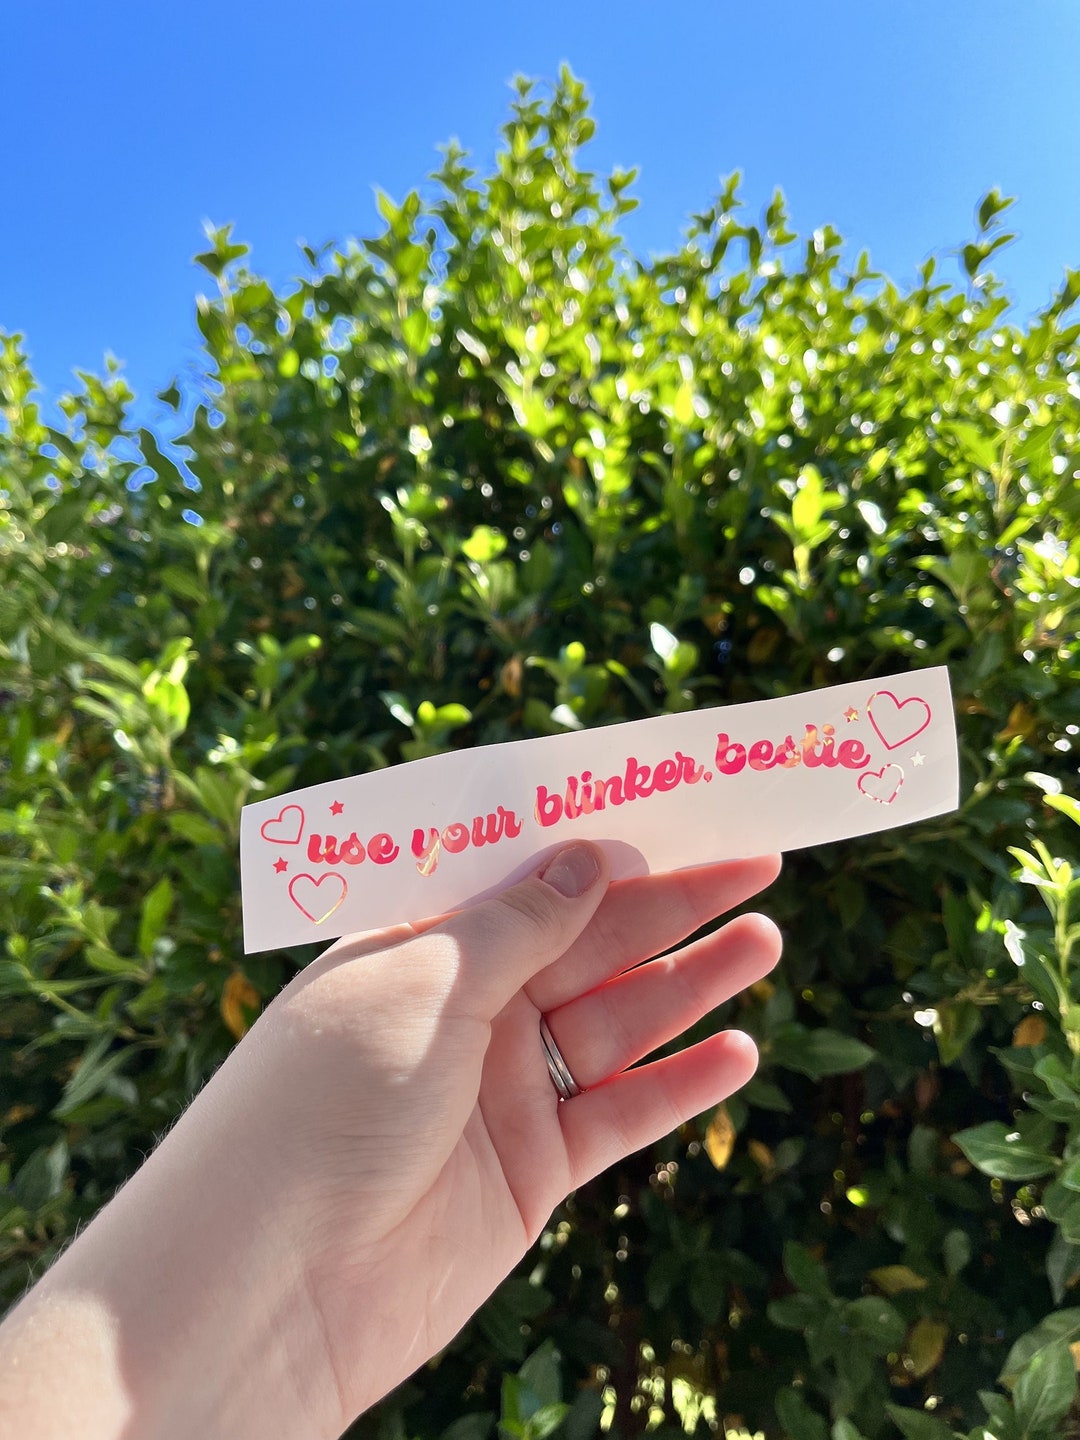 use your blinker, bestie